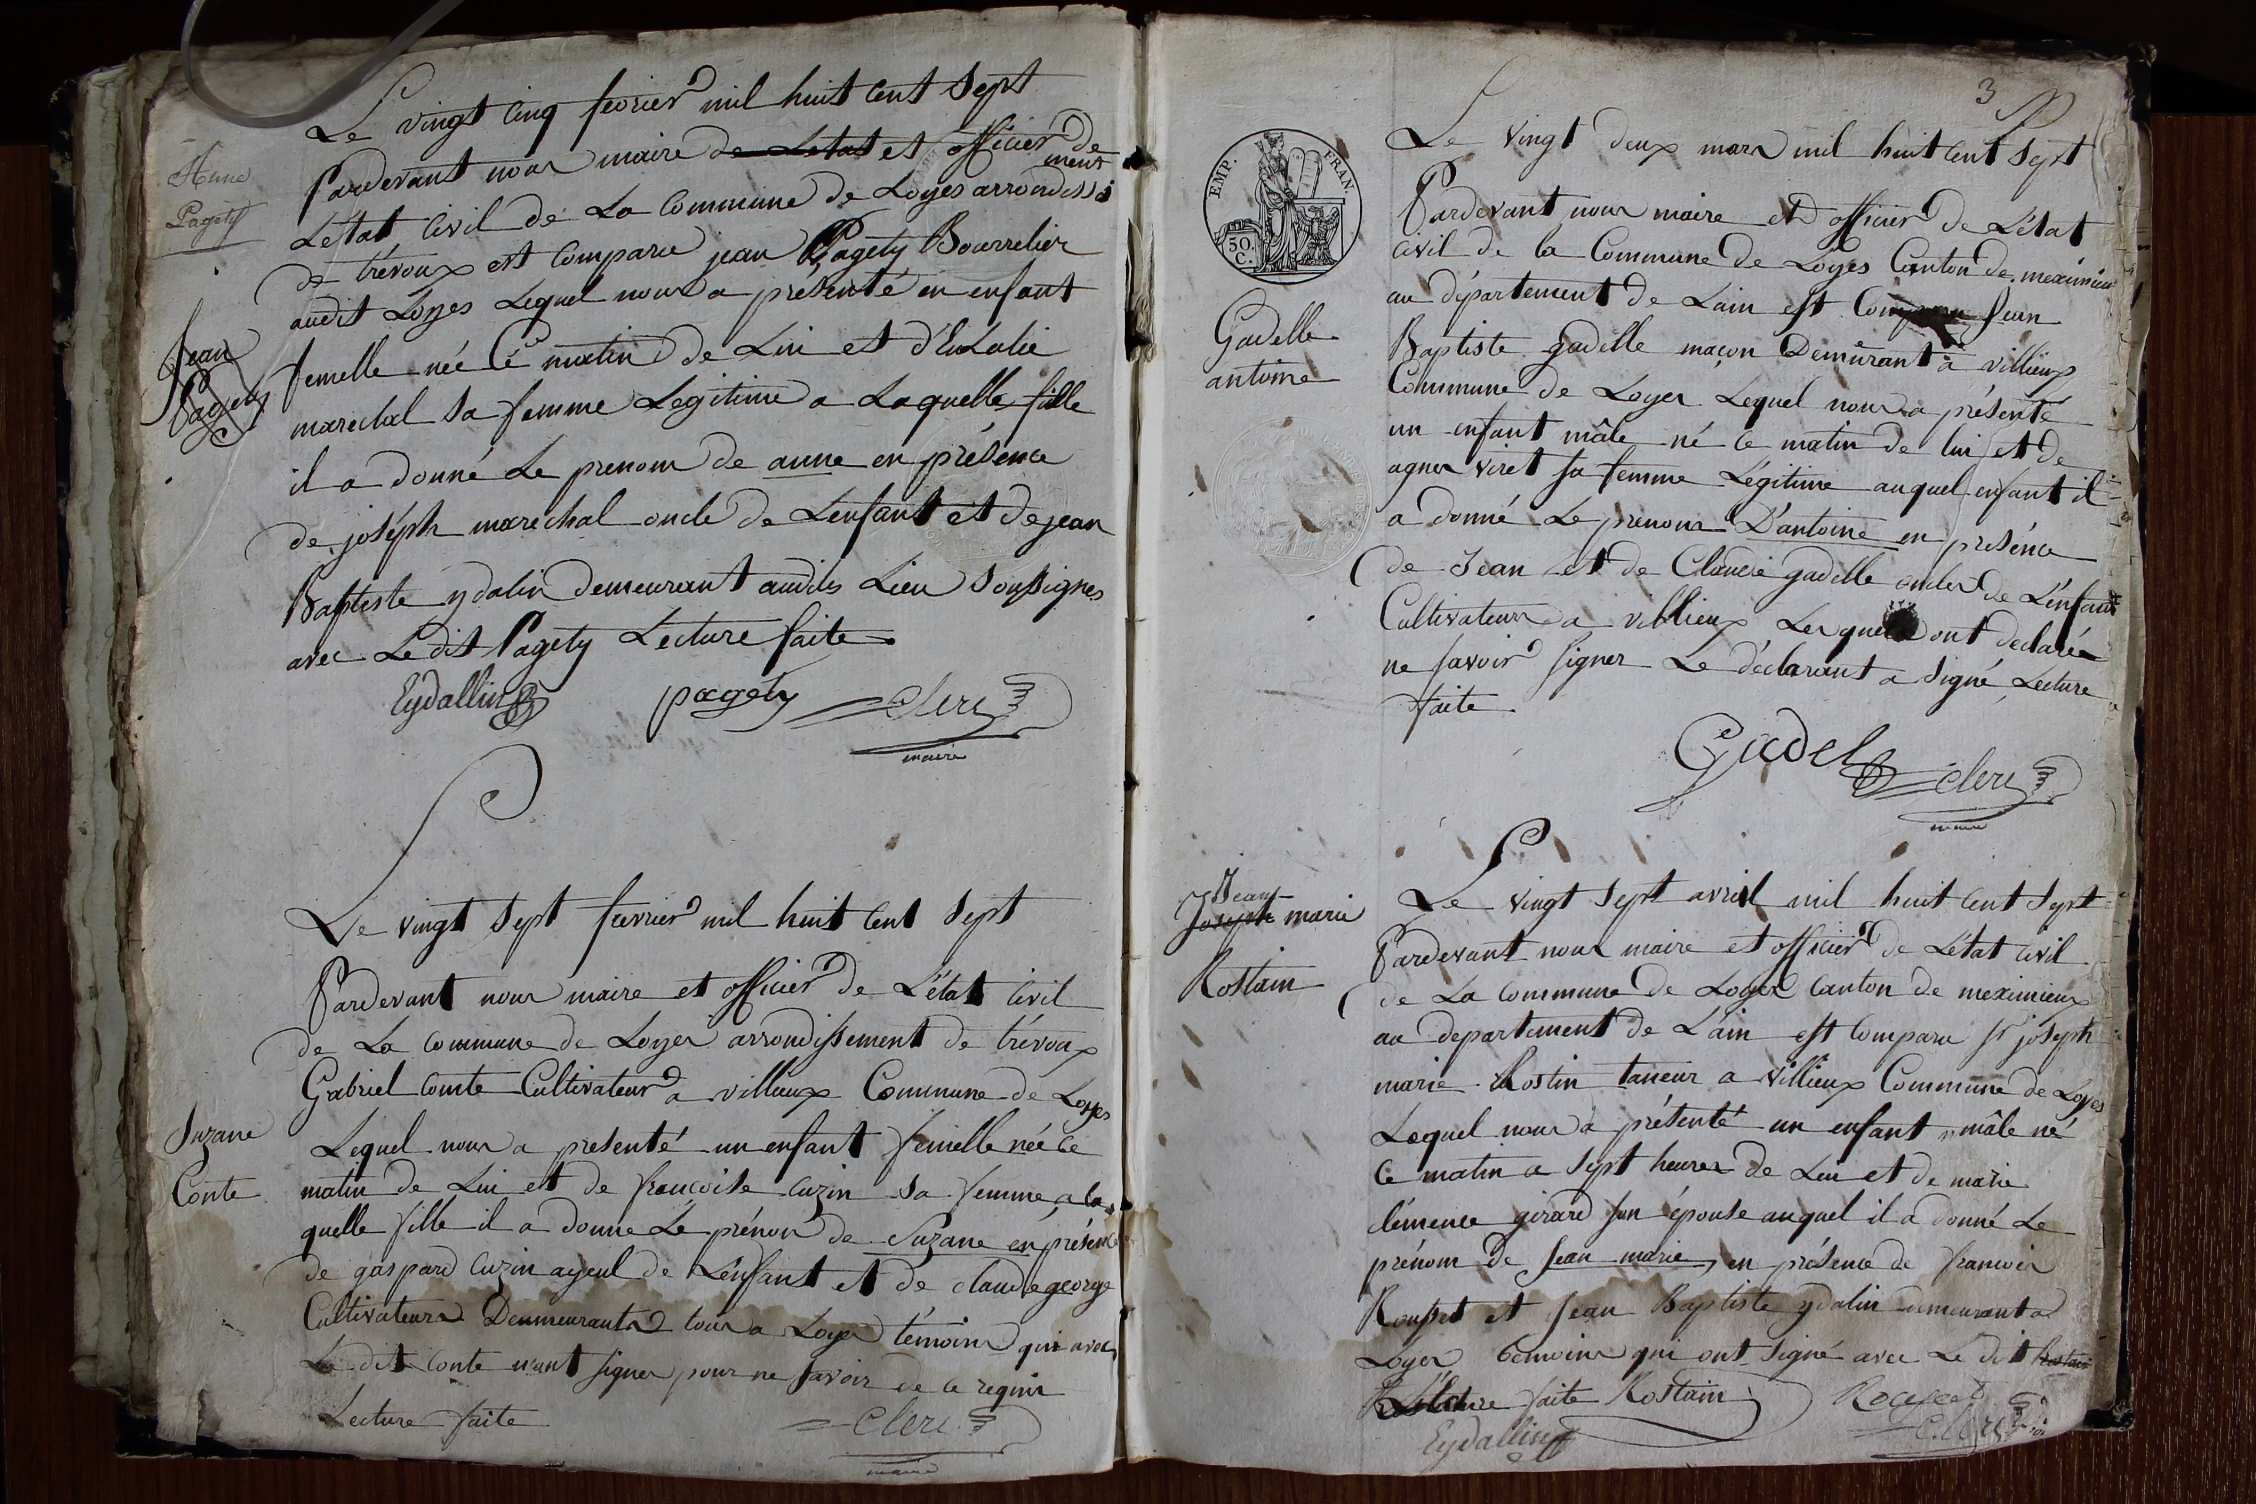 Le vingt cinq fevrier mil huit cent sept
Pardevant nous maire de Letat et officier de
Létat Civil de La Commune de Loyes arrondissement
de trévoux est Comparu jean Pagety Bourrelier
audit Loyes Lequel nous a présenté un enfant
femelle née Ce matin de Lui et d'Eulalie
marechal sa femme Legitime a Laquelle fille
il a donné Le prenom de anne en présence
de joséph marechal oncle de L'enfant et de jean
Baptiste ydalin demeurant audits Lieu soussignes
avec Ledit Pagety Lecture faite
Eydallin pagety Clerc
maire
Anne
Pagety
Jean
Pagety
Le vingt sept fevrier mil huit cent sept
Pardevant nous maire et officier de L'état Civil
de La commune de Loyes arrondissement de trévoux
Gabriel comte Cultivateur a villieux Commune de Loyes
Lequel nous a presenté un enfant femelle née ce
matin de Lui et de francoise cuzin sa femme, a la
quelle fille il a donne Le prénom de Suzane en présence
de gaspard cuzin ayeul de L'enfant et de claude george
Cultivateurs Demmeurants tous a Loyes témoins qui avec
Le dit Conte n'ont signer pour ne savoir de ce requis
Lecture faite Clerc
maire
Suzane
Conte
3
EMP. FRAN.
50.
C.
Le vingt deux mars mil huit cent sept
Pardevant nous maire et officier de L'état
civil de la Commune de Loyes Canton de meximieux
au département de Lain est Comparu Jean
Baptiste gadelle maçon Demeurant à villieux
Commune de Loyes Lequel nous a présenté
un enfant mâle né ce matin de lui et de
agnes viret sa femme Légitime auquel enfant il
a donné Le prenom D'antoine en présence
de Jean et de Claude gadelle oncles de L'enfant
Cultivateurs a villieux Lesquels ont déclarés
ne savoir signer Le déclarant a signé Lecture
faite
Gadel Clerc
maire
Gadelle
antoine
Le vingt sept avril mil huit cent sept
Pardevant nous maire et officier de L'état civil
de La commune de Loyes canton de meximieux
au departement de L'ain est comparu sr joseph
marie Rostin taneur a villieux Commune de Loyes
Lequel nous a présenté un enfant mâle né
Ce matin a sept heures de Lui et de marie
clémence girard son épouse auquel il a donné Le
prénom de Jean marie, en présence de francois
Rousset et Jean Baptiste ydalin demeurant a
Loyes temoins qui ont signé avec Le dit Rostain
Lecture faite Rostain Rousset
Eydallin Clerc
Jean
Joseph marie
Rostain